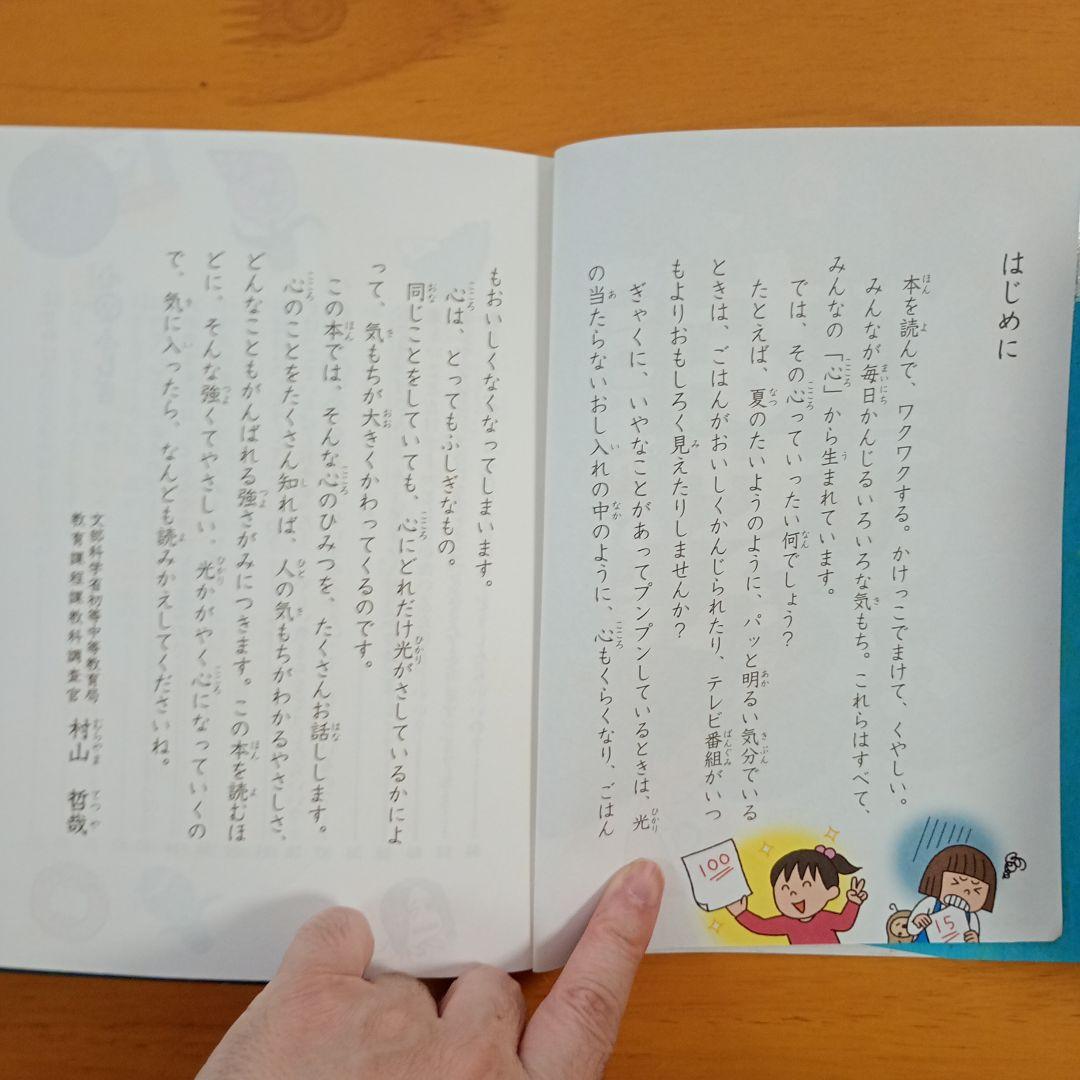 はじめに
本を読んで、ワクワクする。かけっこでまけて、くやしい。
みんなが毎日かんじるいろいろな気もち。これらはすべて、
みんなの「心」から生まれています。
では、その心っていったい何でしょう？
たとえば、夏のたいようのように、パッと明るい気分でいる
ときは、ごはんがおいしくかんじられたり、テレビ番組がいつ
もよりおもしろく見えたりしませんか？
ぎゃくに、いやなことがあってプンプンしているときは、光
の当たらないおし入れの中のように、心もくらくなり、ごはん
もおいしくなくなってしまいます。
心は、とってもふしぎなもの。
同じことをしていても、心にどれだけ光がさしているかによ
って、気もちが大きくかわってくるのです。
この本では、そんな心のひみつを、たくさんお話しします。
心のことをたくさん知れば、人の気もちがわかるやさしさ、
どんなこともがんばれる強さがみにつきます。この本を読むほ
どに、そんな強くてやさしい、光かがやく心になっていくの
で、気に入ったら、なんども読みかえしてくださいね。
文部科学省初等中等教育局
教育課程課教科調査官
村山 哲哉
100
15